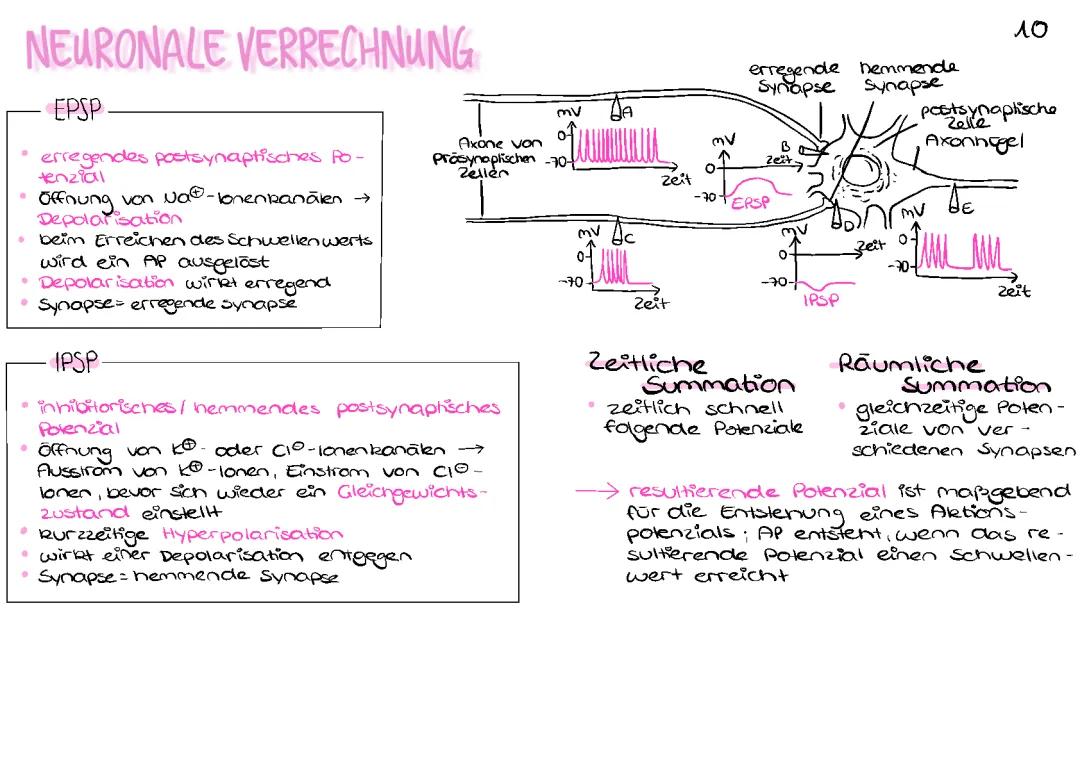 10
NEURONALE VERRECHNUNG
EPSP
• erregendes postsynaptisches Po-
tenzial
• Öffnung von Na⊕-Ionenkanälen →
Depolarisation
• beim Erreichen des Schwellenwerts
wird ein AP ausgelöst
• Depolarisation wirkt erregend
• Synapse = erregende Synapse
erregende
Synapse
hemmende
Synapse
postsynaptische
Zelle
Axonhügel
Axone von
präsynaptischen
Zellen
mV
0
-70
A
Zeit
mV
0
-70
B
Zeit
EPSP
mV
0
-70
C
Zeit
mV
0
-70
D
Zeit
IPSP
mV
0
-70
E
Zeit
IPSP
• inhibitorisches / hemmendes postsynaptisches
Potenzial
• Öffnung von K⊕- oder Cl⊖-Ionenkanälen →
Ausstrom von K⊕-Ionen, Einstrom von Cl⊖-
Ionen, bevor sich wieder ein Gleichgewichts-
zustand einstellt
• kurzzeitige Hyperpolarisation
• wirkt einer Depolarisation entgegen
• Synapse = hemmende Synapse
Zeitliche
Summation
• zeitlich schnell
folgende Potenziale
Räumliche
Summation
• gleichzeitige Poten-
ziale von ver-
schiedenen Synapsen
→ resultierende Potenzial ist maßgebend
für die Entstehung eines Aktions-
potenzials; AP entsteht, wenn das re-
sultierende Potenzial einen Schwellen-
wert erreicht